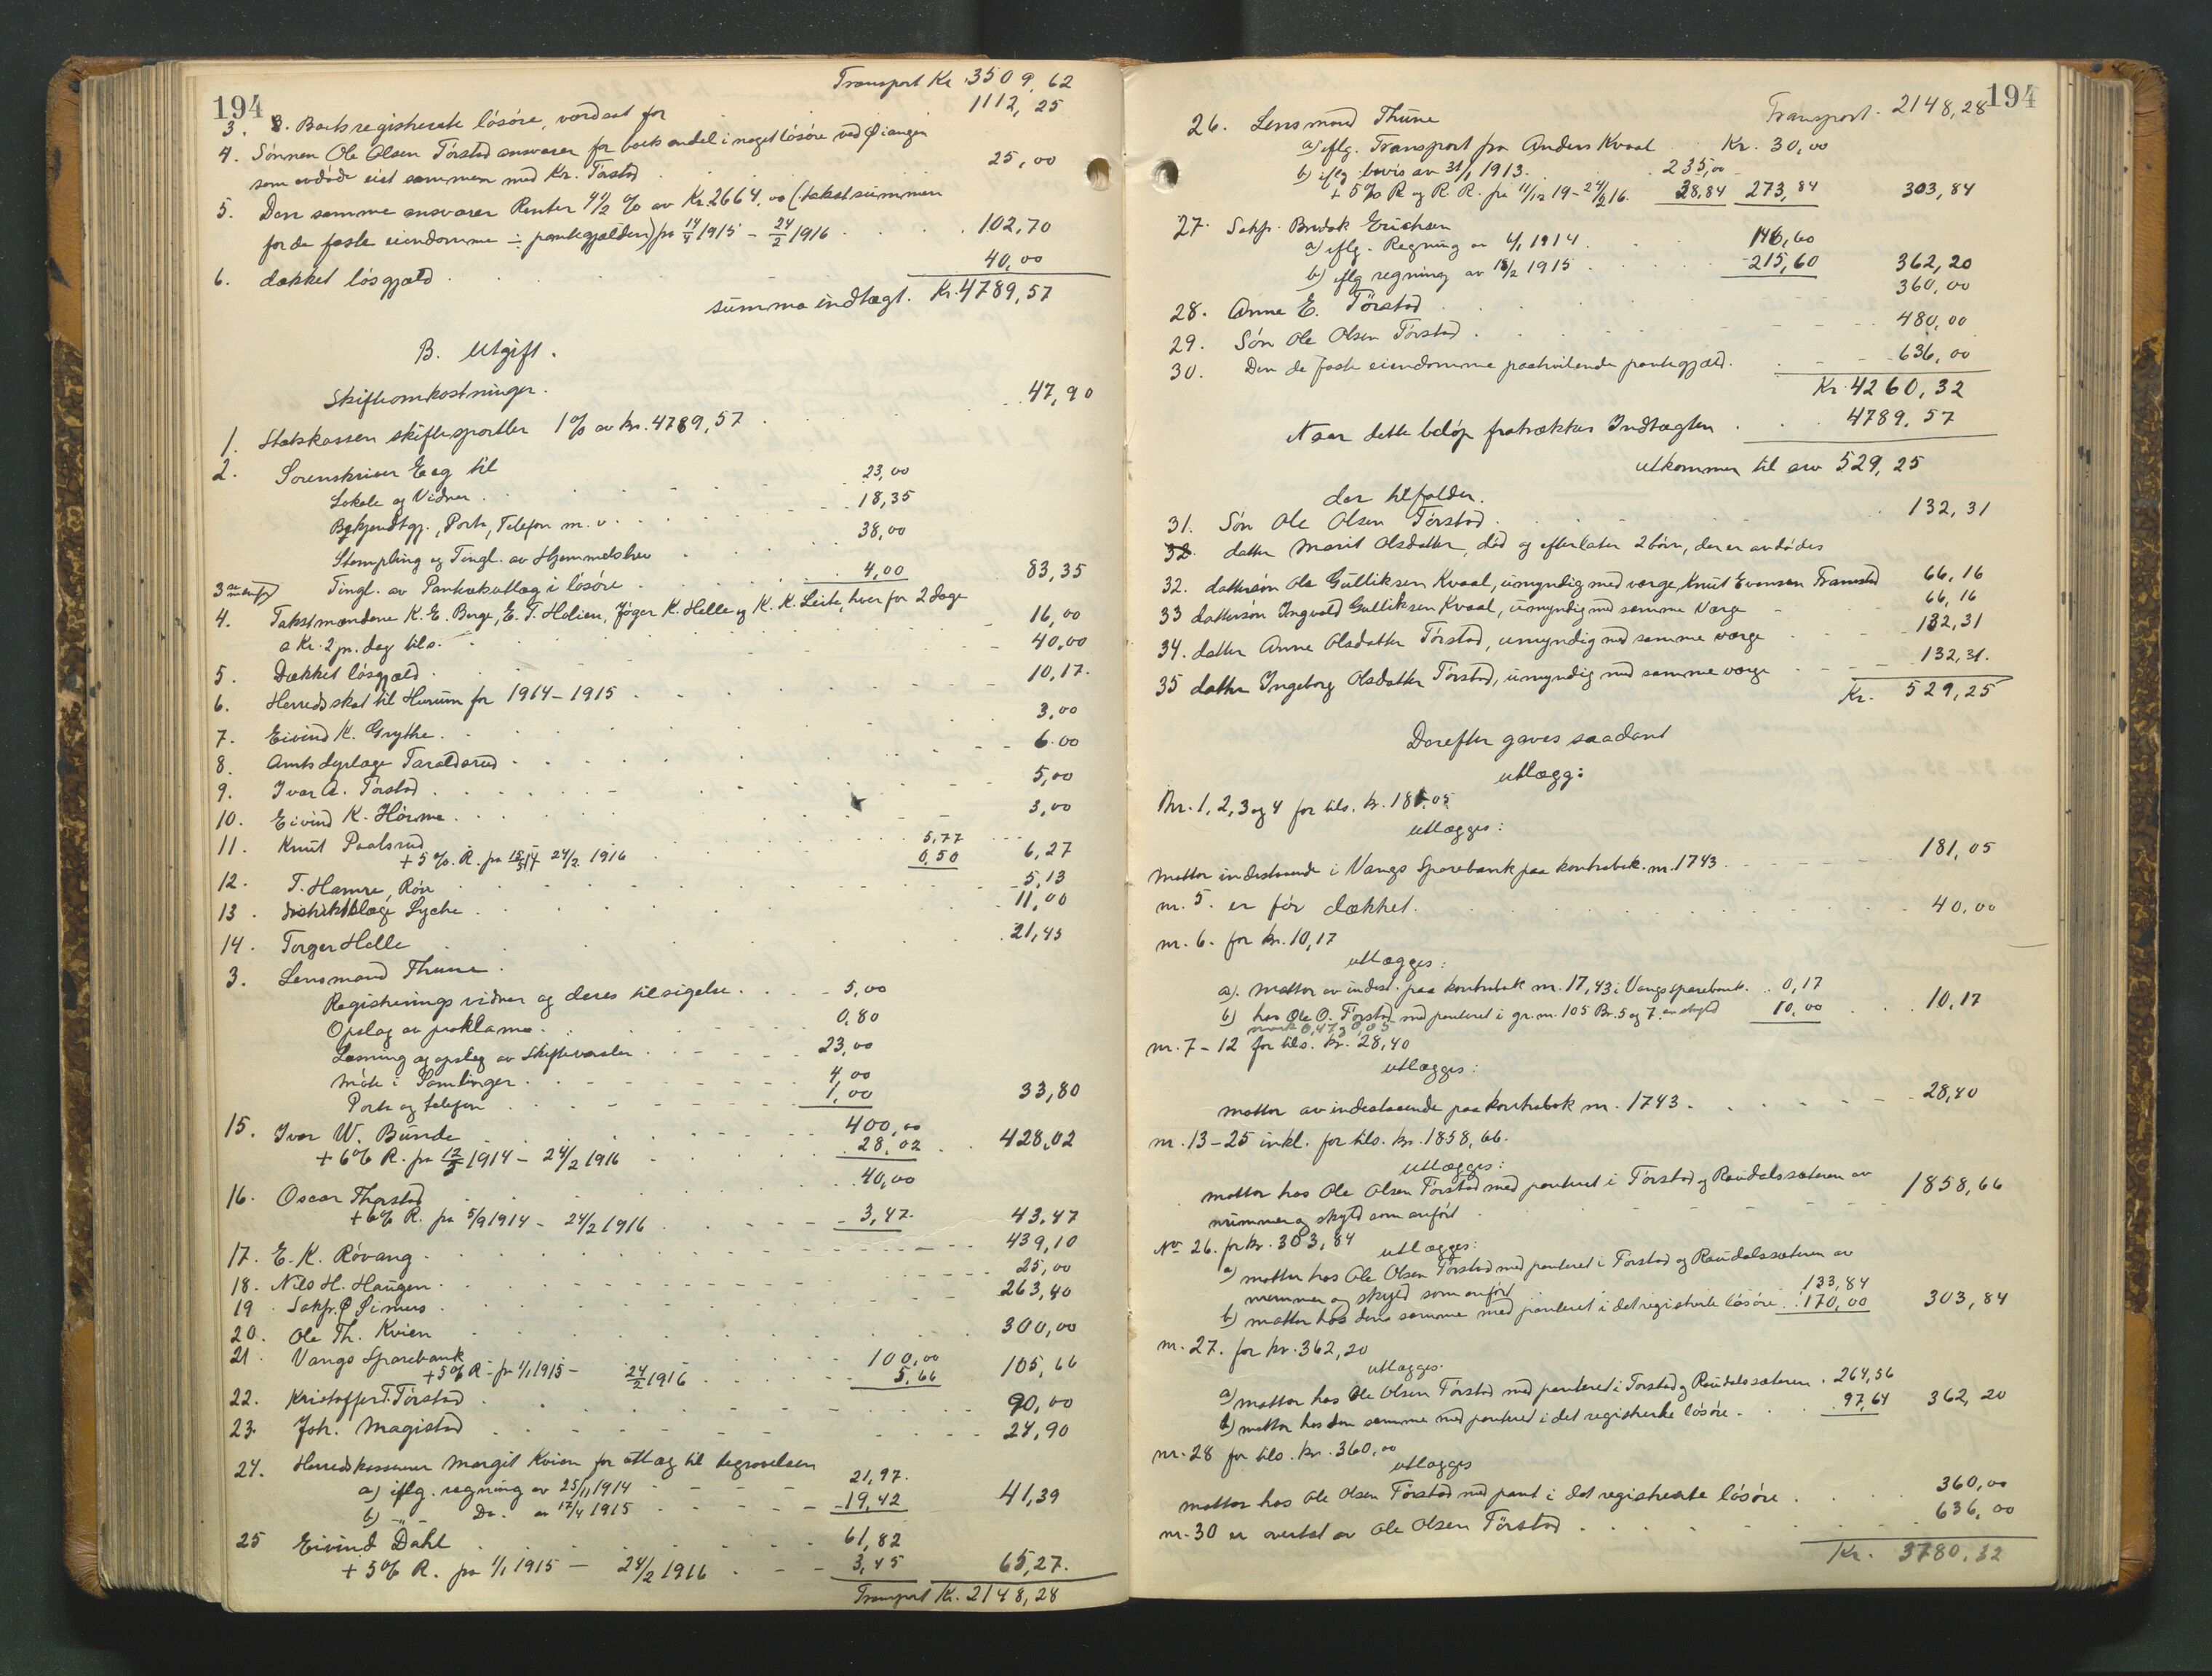 194
Transport Kr. 3509,62
3. 8. Boets registrerte løsøre, vordsat for 1112,25
4. Sønnen Ole Olsen Tørstad ansvarer for boets andel i noget løsøre ved Øiangen
som avdøde eiet sammen med Kr. Tørstad 25,00
5. Den samme ansvarer Renter 4 1/2 % av Kr. 2664,00 (takstsummen
for de faste eiendomme ÷ pantegjælden) fra 14/4 1915 - 24/2 1916 102,70
6. dækket løsgjæld 40,00
summa indtægt. Kr. 4789,57
B. Utgift.
Skifteomkostninger.
1. Statskassen skiftesportler 1 % av kr. 4789,57 47,90
2. Sorenskriver Eeg til
Lokale og Vidner 23,00
Bekjendtgj., Porto, Telefon m. v. 18,35
Stempling og Tingl. av Hjemmelsbrev 38,00
Tingl. av Panteutlæg i løsøre 4,00 83,35
4. Takstmændene K. E. Berge, E. T. Holien, Jøger K. Helle og K. K. Leite, hver for 2 dage
a Kr. 2 pr. dag tils. 16,00
5. Dækket løsgjæld 40,00
6. Herredsskat til Hurum for 1914-1915 10,17.
7. Eivind K. Grythe 3,00
8. Amts dyrlæge Taraldsrud 6.00
9. Ivar A. Tørstad 5,00
10. Eivind K. Hørme 3,00
11. Knut Paalsrud 5,77
+ 5 %. R. fra 24/2 1916 0,50 6,27
12. T. Hamre, Røn 5,13
13. distriktslæge Lyche 11,00
14. Torger Helle 21,45
3. Lensmand Thune
Registrerings vidner og deres tilsigelse 5,00
Opslag av proklama 0,80
Læsning og opslag av Skiftevarsler 23,00
Møte i Samlinger 4,00
Porto og telefon 1,00 33,80
15. Ivar W. Bunde 400,00
+ 6 % R. fra 12/5 1914 - 24/2 1916 28,02 428,02
16. Oscar Thorstad 40,00
+ 6 % R. fra 5/9 1914 - 24/2 1916 3,47 43,47
17. E. K. Røvang 439,10
18. Nils H. Haugen 25,00
19. Sakfr. Ø 263,40
20. Ole Th. Kvien 300,00
21. Vangs Sparebank 100,00
+ 5 % R. fra 1/1 1915 - 24/2 1916 5,66 105,66
22. Kristoffer T. Tørstad 90,00
23. Joh. Magistad 24,90
24. Herredskasserer Margit Kvien for utlæg til begravelsen
a) iflg. regning av 25/11 1914 21,97
b) -"- Do. av 17/4 1915 19,42 41,39
25 Eivind Dahl 61,82
+ 5 % R. fra 1/1 1915 - 24/2 1916 3,45 65,27.
Transport Kr. 2148,28
194
Transport. 2148,28
26. Lensmand Thune
a) iflg. Transport fra Anders Kvaal Kr. 30,00
b) iflg bevis av 31/1 1913. 235,00
+ 5 % R og R. R. fra 11/12 19 - 24/2 16. 38,84 273,84 303,84
27. Sakfr. Bredok Erichsen
a) iflg. Regning av 6/1 1914 146,60
b) iflg regning av 18/2 1915 215,60 362,20
28. Anne E. Tørstad 360,00
29. Søn Ole Olsen Tørstad 480,00
30. Den de faste eiendomme paahvilende pantegjæld 636,00
Kr. 4260,32
Naar dette beløp fratrækkes Indtægten 4789,57
utkommer til arv 529,25
der tilfalder.
31. Søn Ole Olsen Tørstad 132,31
32. datter Marit Olsdatter, død og efterlater 2 børn, der er avdødes
32. dattersøn Ole Gulliksen Kvaal, umyndig med værge, Knut Evensen Framstad 66,16
33 dattersøn Ingvald Gulliksen Kvaal, umyndig med samme Værge 66,16
34. datter Anne Olsdatter Tørstad, umyndig med samme værge 132,31
35 datter Ingeborg Olsdatter Tørstad, umyndig med samme værge 132,31.
Kr. 529,25
Derefter gaves saadant
utlægg:
Nr. 1, 2, 3 og 4 for tils. kr. 181,05
utlægges:
mottar indestaaende i Vangs Sparebank paa kontrabok nr. 1743 181,05
nr. 5. er før dækket 40,00
nr. 6. for kr. 10,17
utlægges:
a). mottar av indest. paa kontrabok nr. 17,43 i Vangs Sparebank 0,17
b) hos Ole O. Tørstad med panteret i gr. nr. 105 Br. 5 og 7 av skyld 10,00 10,17
mark 0,47 og 0,05
nr. 7 - 12 for tils. kr. 28,40
utlægges:
mottar av indestaaende paa kontrabok nr. 1743 28,40
nr. 13 - 25 inkl. for tils. kr. 1858,66.
utlægges:
mottar hos Ole Olsen Tørstad med panteret i Tørstad og Raudalssæteren av
nummer og skyld som anført 1858,66
No 26. for kr. 303,84
utlægges:
a) mottar hos Ole Olsen Tørstad med panteret i Tørstad og Raudalssæteren av
nummer og skyld som anført 133,84
b) mottar hos den samme med panteret i det registrerte løsøre 170,00 303,84
nr. 27. for kr. 362,20
utlægges.
a) mottar hos Ole Olsen Tørstad med panteret i Tørstad og Raudalssæteren 264,56
b) mottar hos den samme med panteret i det registrerte løsøre 97,64 362,20
nr. 28 for tils. kr. 360,00
utlægges
mottar hos Ole Olsen Tørstad med pant i det registrerte løsøre 360,00
nr. 30 er overtat av Ole Olsen Tørstad 636,00
Kr. 3780,32